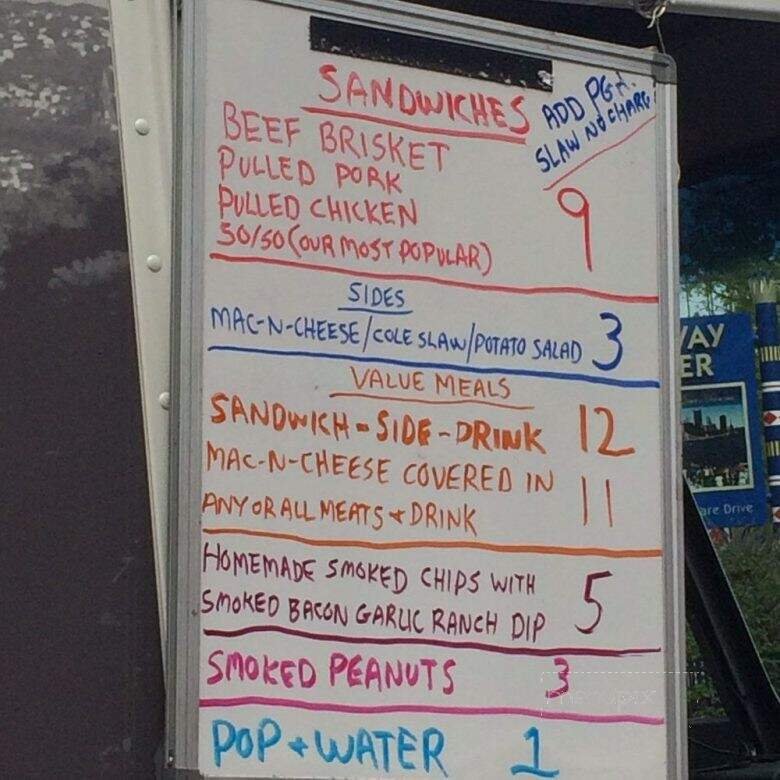 SANDWICHES
ADD PGH.
SLAW NO CHARGE
BEEF BRISKET
PULLED PORK
PULLED CHICKEN
50/50 (OUR MOST POPULAR)
9
SIDES
MAC-N-CHEESE/COLE SLAW/POTATO SALAD 3
VALUE MEALS
SANDWICH-SIDE-DRINK 12
MAC-N-CHEESE COVERED IN
ANY OR ALL MEATS + DRINK 11
HOMEMADE SMOKED CHIPS WITH
SMOKED BACON GARLIC RANCH DIP 5
SMOKED PEANUTS 3
POP + WATER 1
WAY
ER
are Drive